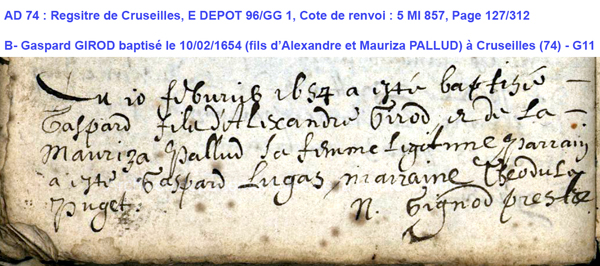 AD 74 : Regsitre de Cruseilles, E DEPOT 96/GG 1, Cote de renvoi : 5 MI 857, Page 127/312
B- Gaspard GIROD baptisé le 10/02/1654 (fils d'Alexandre et Mauriza PALLUD) à Cruseilles (74) - G11
Du 10 febvrier 1654 a esté baptizé
Gaspard fils d'Alexandre Girod et de La
Mauriza Pallud sa femme Legitime Parrain
a esté Gaspard Lugas, marraine Theodula
Puget. N. Gignod prestre